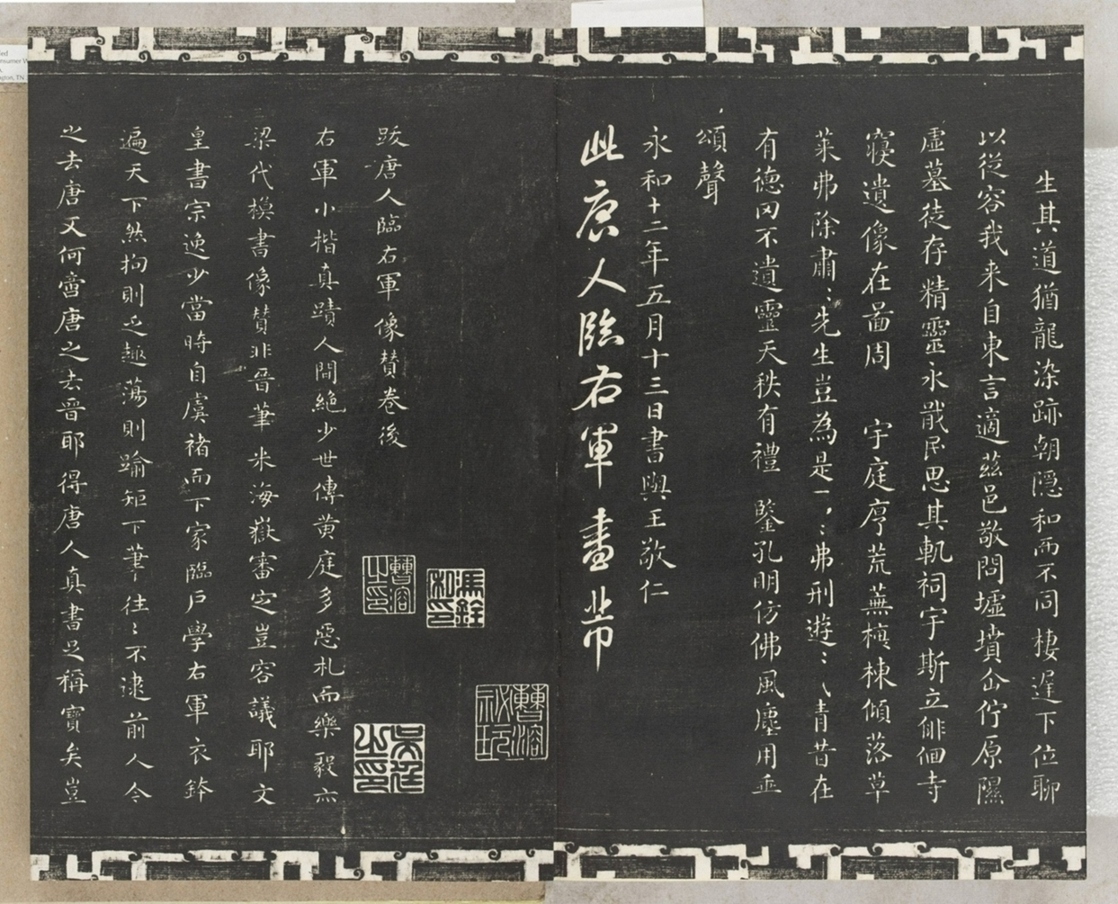 生其道猶龍染跡朝隱和而不同棲遲下位聊
以從容我来自東言適茲邑敬問墟墳企佇原隰
虛墓徒存精靈永戢民思其軌祠宇斯立俳佪寺
寢遺像在啚周 宇庭序荒蕪榱棟傾落草
萊弗除肅〻先生豈為是一〻弗刑遊〻乀青昔在
有德罔不遺靈天秩有禮 鑒孔明仿佛風塵用垂
頌聲
永和十二年五月十三日書與王敬仁
此唐人臨右軍畫
跋唐人臨右軍像賛卷後
右軍小楷真蹟人間絶少世傳黄庭多惡札而樂毅亦
梁代模書像賛非晉筆米海嶽審定豈容議耶文
皇書宗逸少當時自虞褚而下家臨戶學右軍衣鉢
遍天下然拘則乏趣蕩則踰矩下筆往〻不逮前人今
之去唐又何啻唐之去晉耶得唐人真書足稱寶矣豈
馮銓私印
曹溶之印
曹溶秘玩
吴廷之印